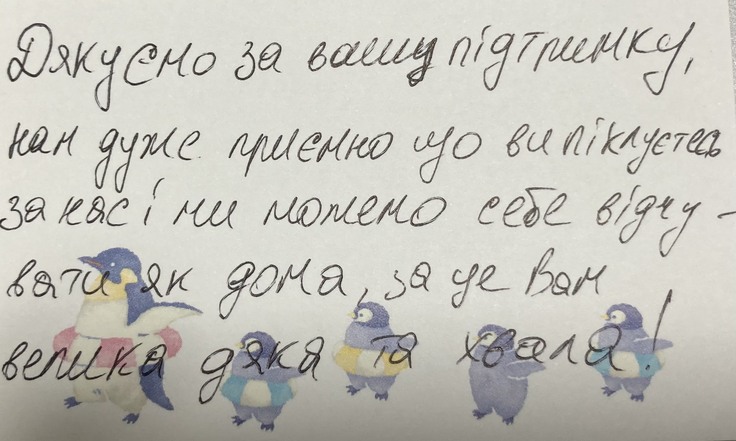 Дякуємо за вашу підтримку,
нам дуже приємно що ви піклуєтесь
за нас і ми можемо себе відчу -
вати як дома, за це Вам
велика дяка та хвала!